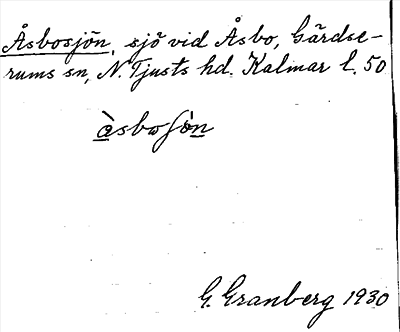 Åsbosjön, sjö vid Åsbo, Gärdse-
rums sn, N. Tjusts hd. Kalmar l. 50
àsboʃòn
G. Granberg 1930